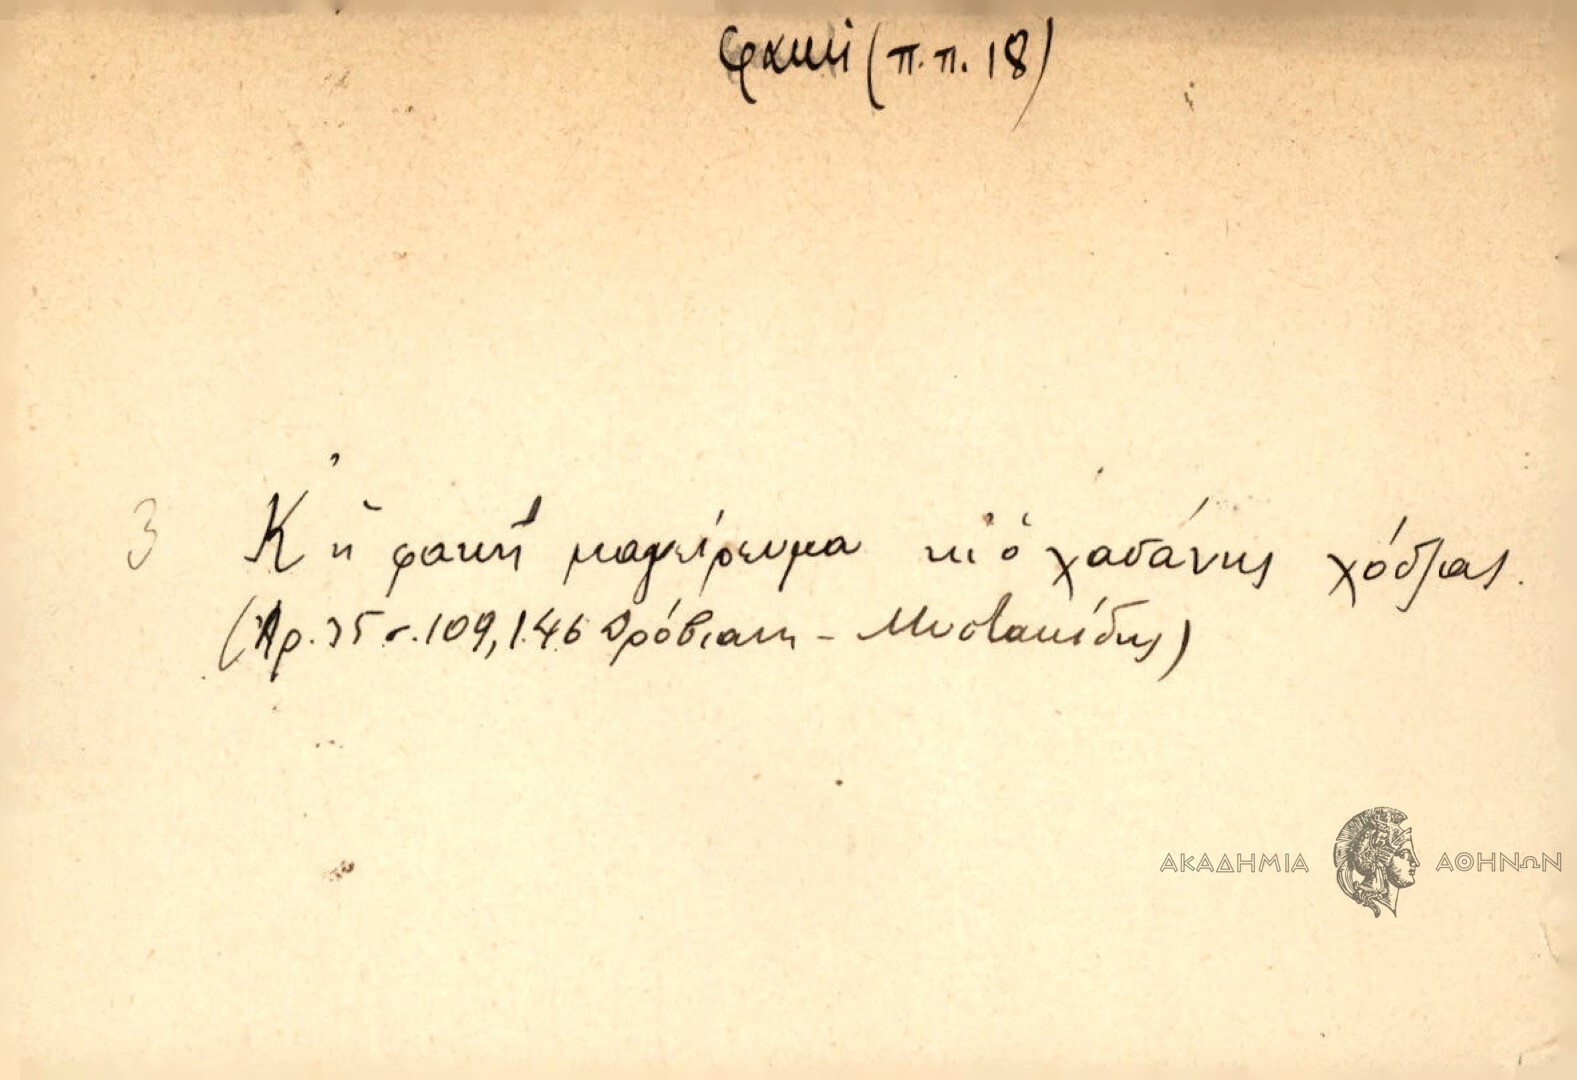 φακή (π.π. 18)
3 Κ' ἡ φακὴ μαγείρευμα κι ὁ χασάνης χόδζας.
(Ἀρ. 35 σ. 109, 146 Δρόβιανη - Μυστακίδης)
ΑΚΑΔΗΜΙΑ ΑΘΗΝΩΝ